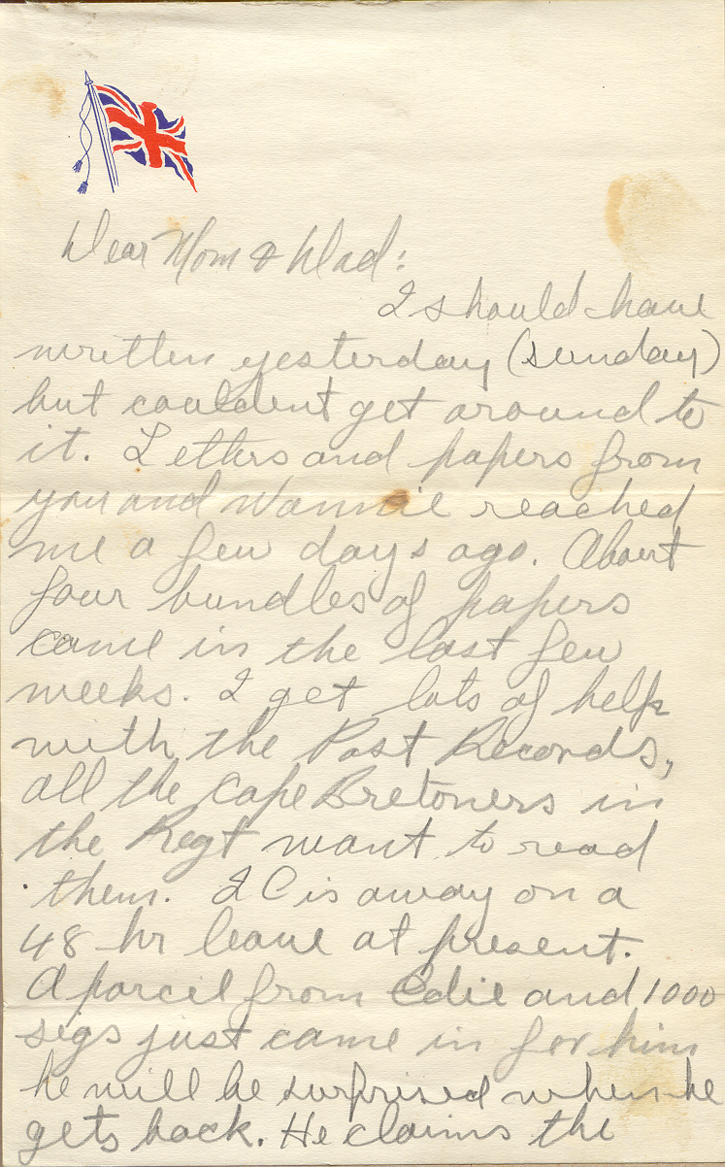 Dear Mom & Dad:
I should have
written yesterday (sunday)
but couldent get around to
it. Letters and papers from
you and Wannie reached
me a few days ago. About
four bundles of papers
came in the last few
weeks. I get lots of help
with the Post Records,
all the Cape Bretoners in
the Regt want to read
them. J C is away on a
48 hr leave at present.
A parcil from Edie and 1000
sigs just came in for him
he will be surprised when he
gets back. He claims the